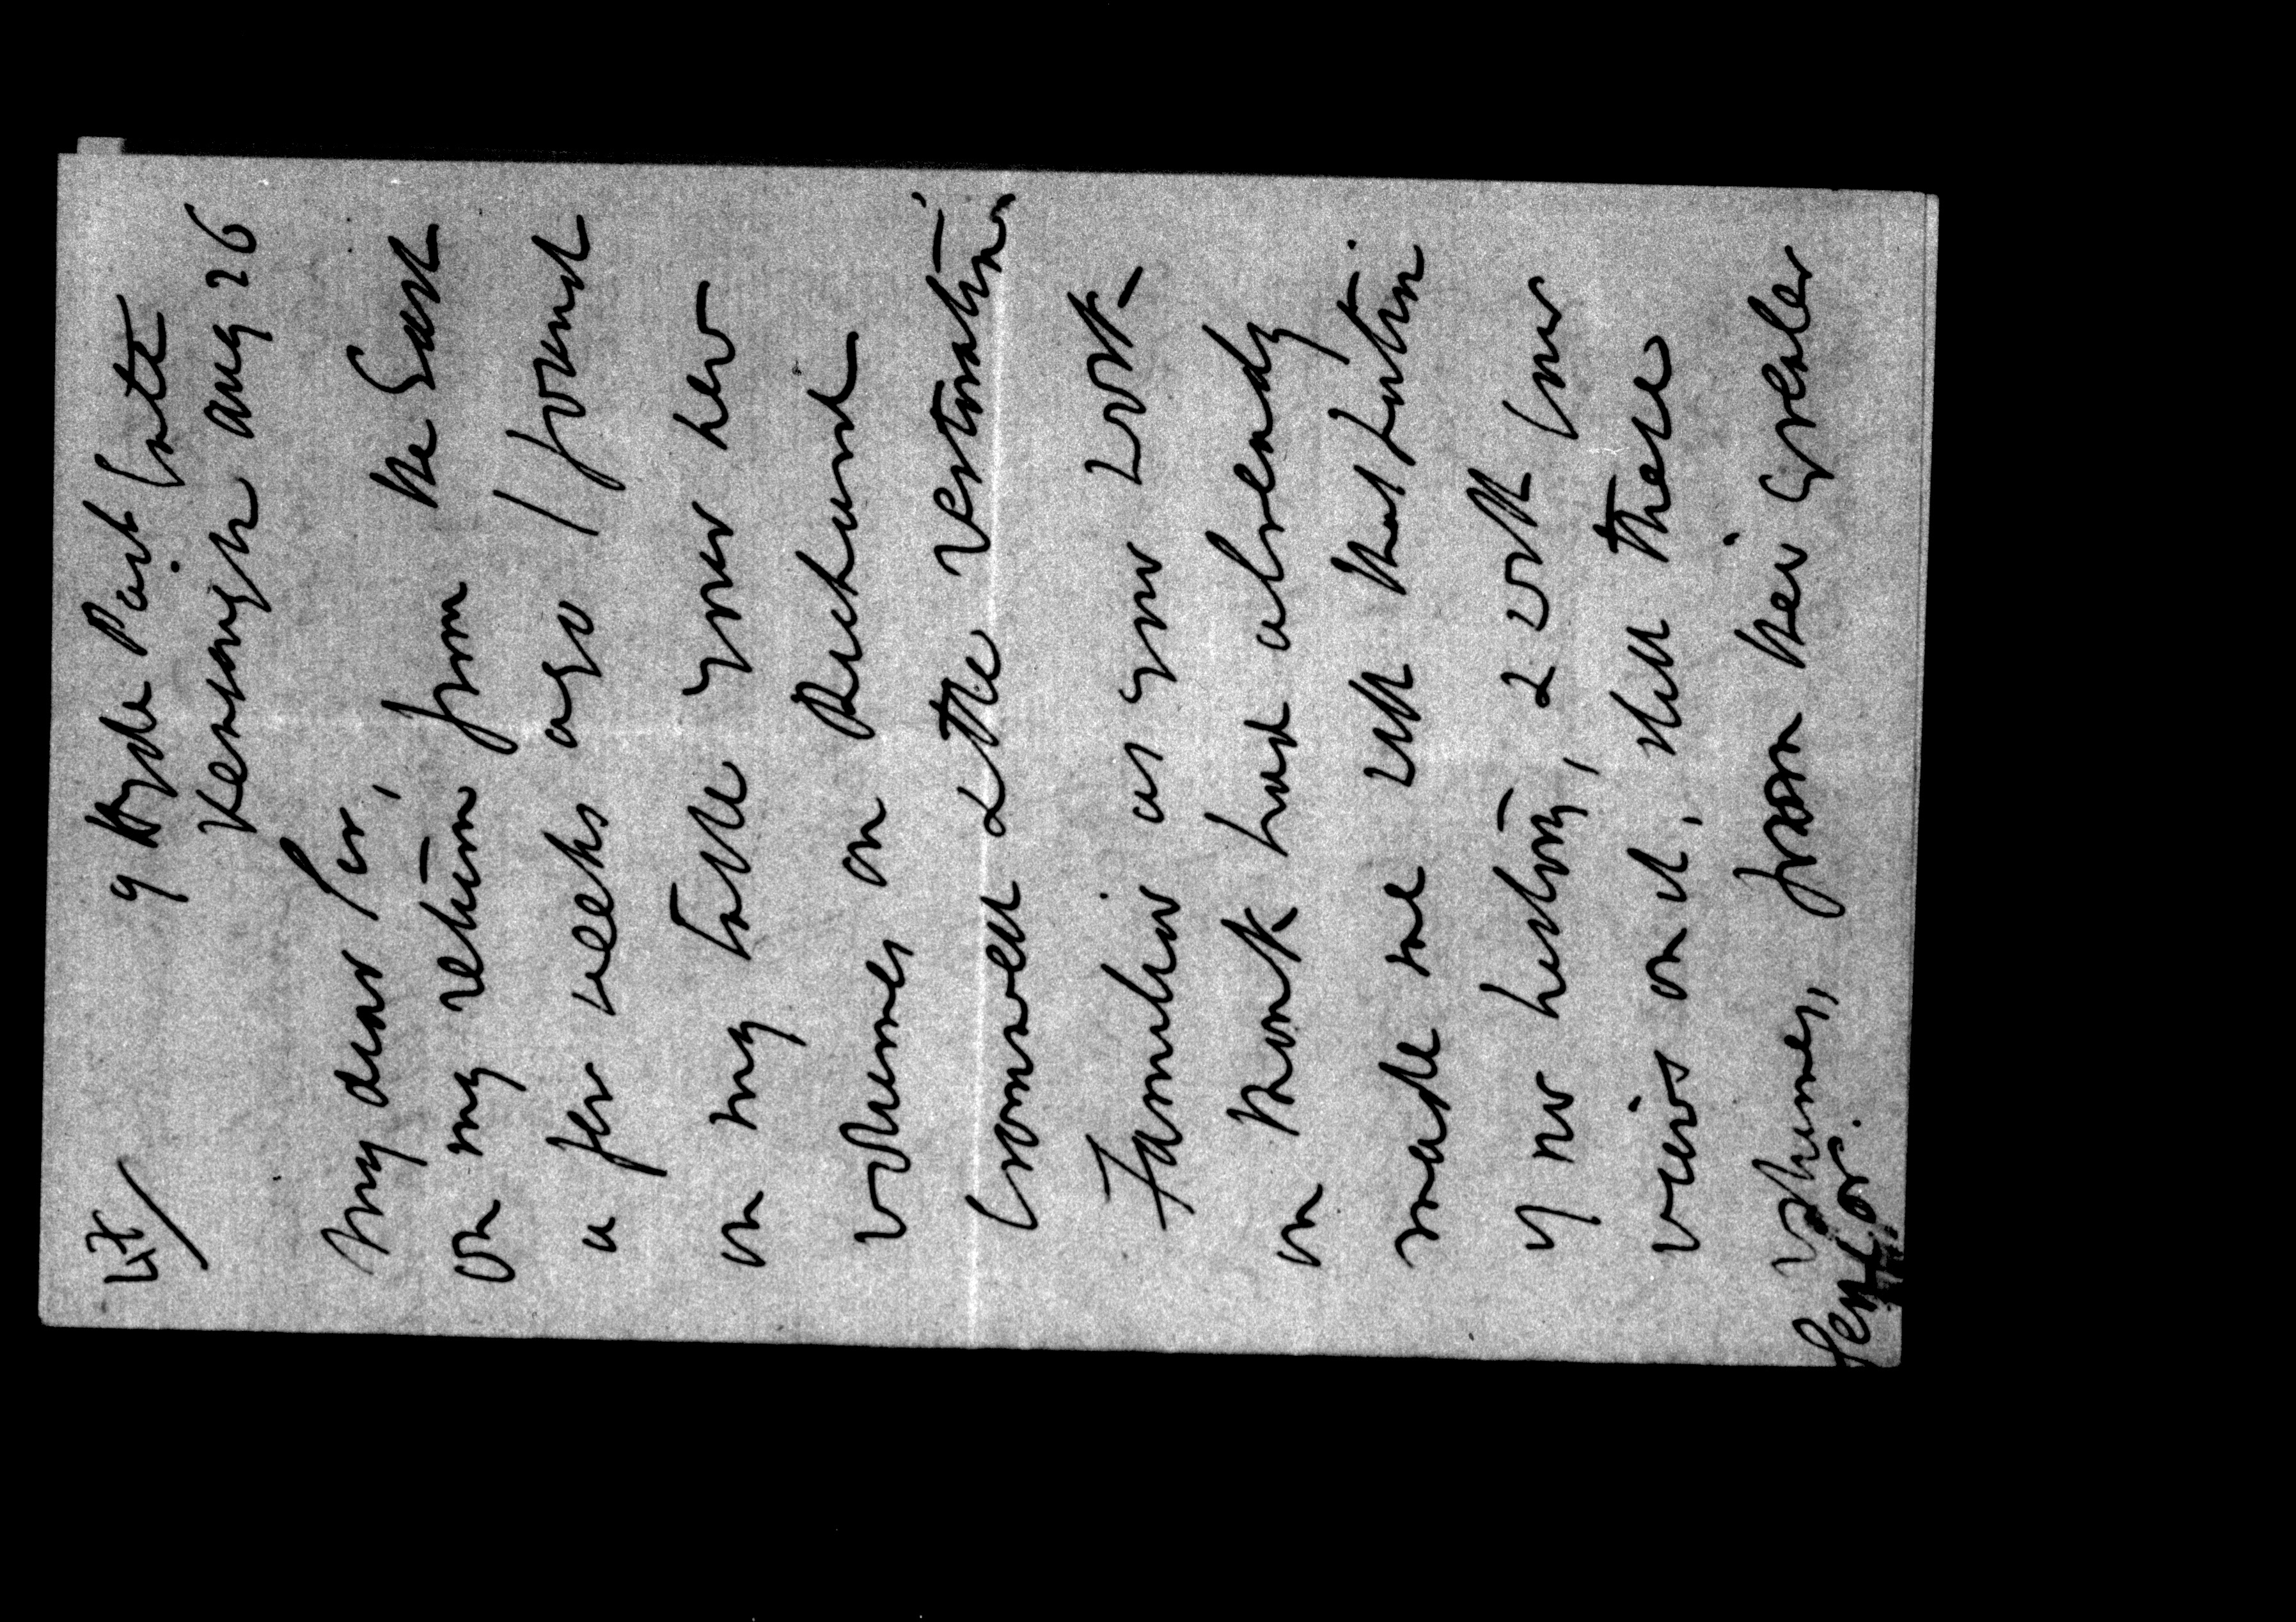 9 Hyde Park Gate
Kensington Aug 26
My dear Sir,
On my return from the East
a few weeks ago I found
on my table your new
volumes on Richard
Cromwell & the Restoration
Familiar as your work
on Monk had already
made me with that portion
of our history, & with your
views on it, still these
volumes, from their greater